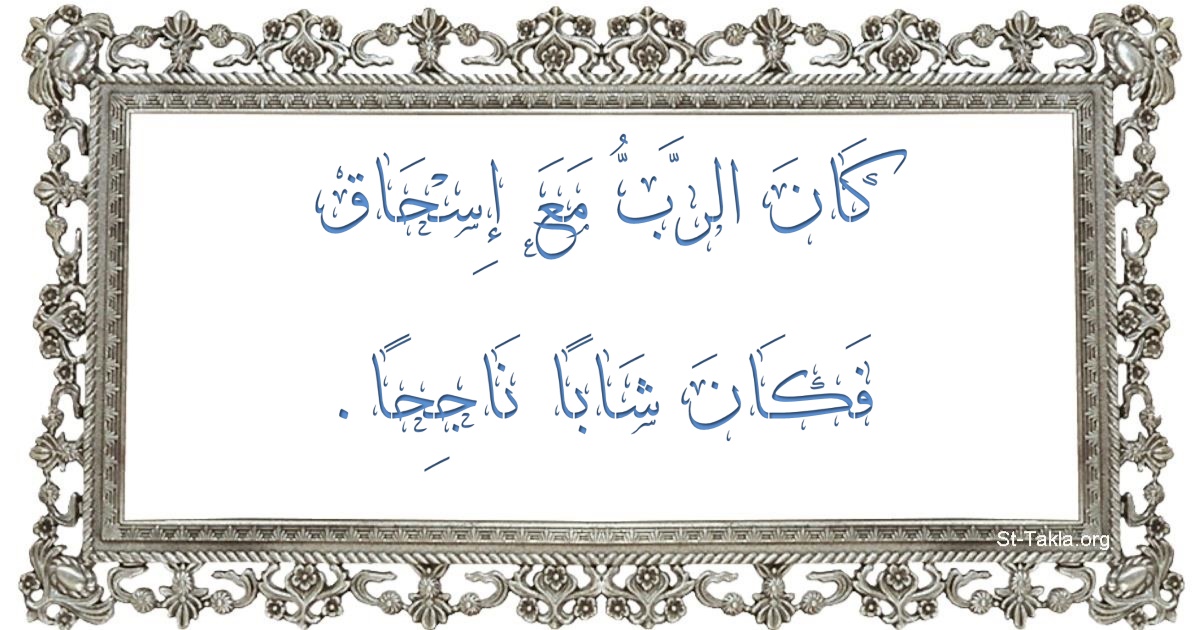 كَانَ الرَّبُّ مَعَ إِسْحَاقْ
فَكَانَ شَابًا نَاجِحًا .
St-Takla.org